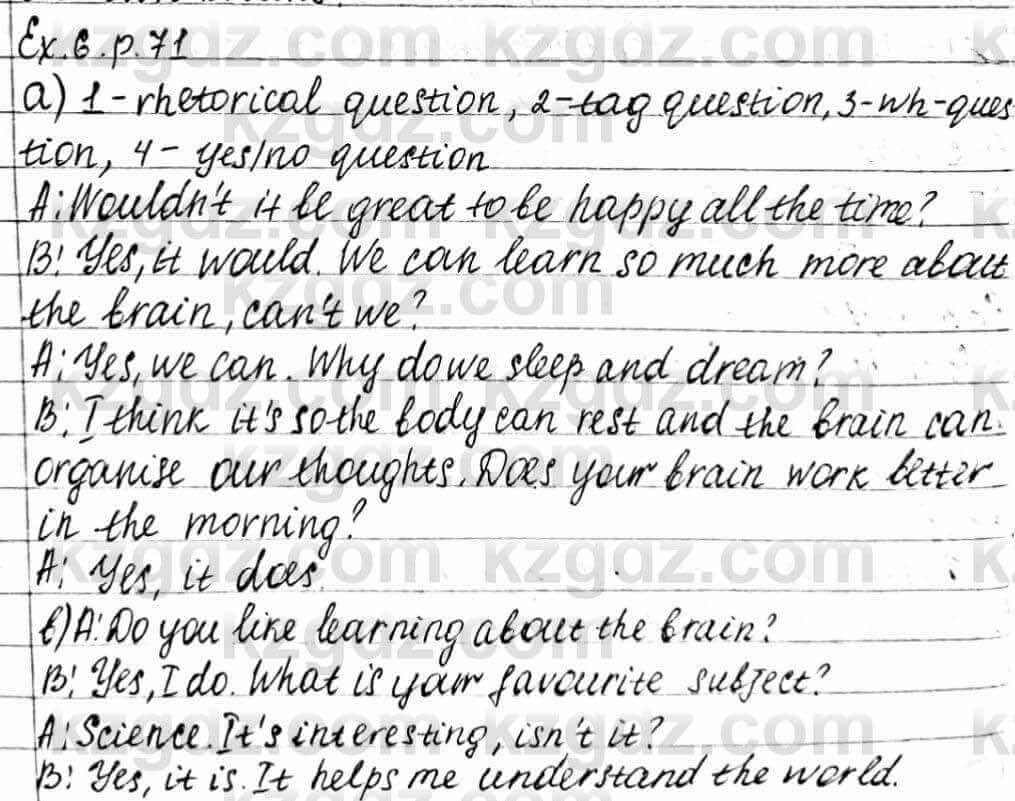 Ex.6.p.71
a) 1-rhetorical question, 2-tag question, 3-wh-ques
tion, 4- yes/no question
A: Wouldn't it be great to be happy all the time?
B: Yes, it would. We can learn so much more about
the brain, can't we?
A: Yes, we can. Why do we sleep and dream?
B: I think it's so the body can rest and the brain can
organise our thoughts. Does your brain work better
in the morning?
A: Yes, it does.
b) A: Do you like learning about the brain?
B: Yes, I do. What is your favourite subject?
A: Science. It's interesting, isn't it?
B: Yes, it is. It helps me understand the world.
kzgdz.com